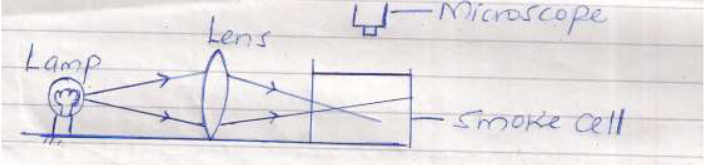 Microscope
Lens
Lamp
Smoke cell